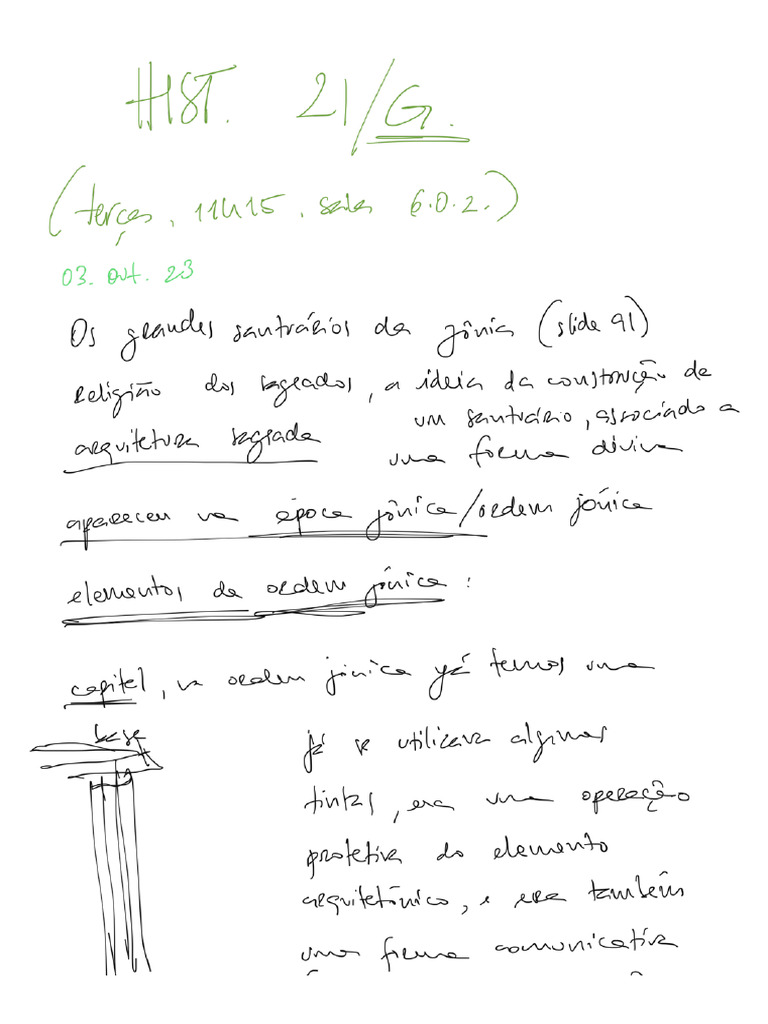 HIST. 21/G.
(terças, 11H15, sala 6.0.2.)
03. out. 23
Os grandes santuários da jônia (slide 91)
religião dos sagrados, a ideia da construção de
um santuário, associado a
arquitetura sagrada uma forma divina
aparecem na época jônica/ordem jónica
elementos da ordem jônica:
capitel, na ordem jónica já temos uma
base
já se utilizava algumas
tintas, era uma operação
protetiva do elemento
arquitetônico, e era também
uma forma comunicativa